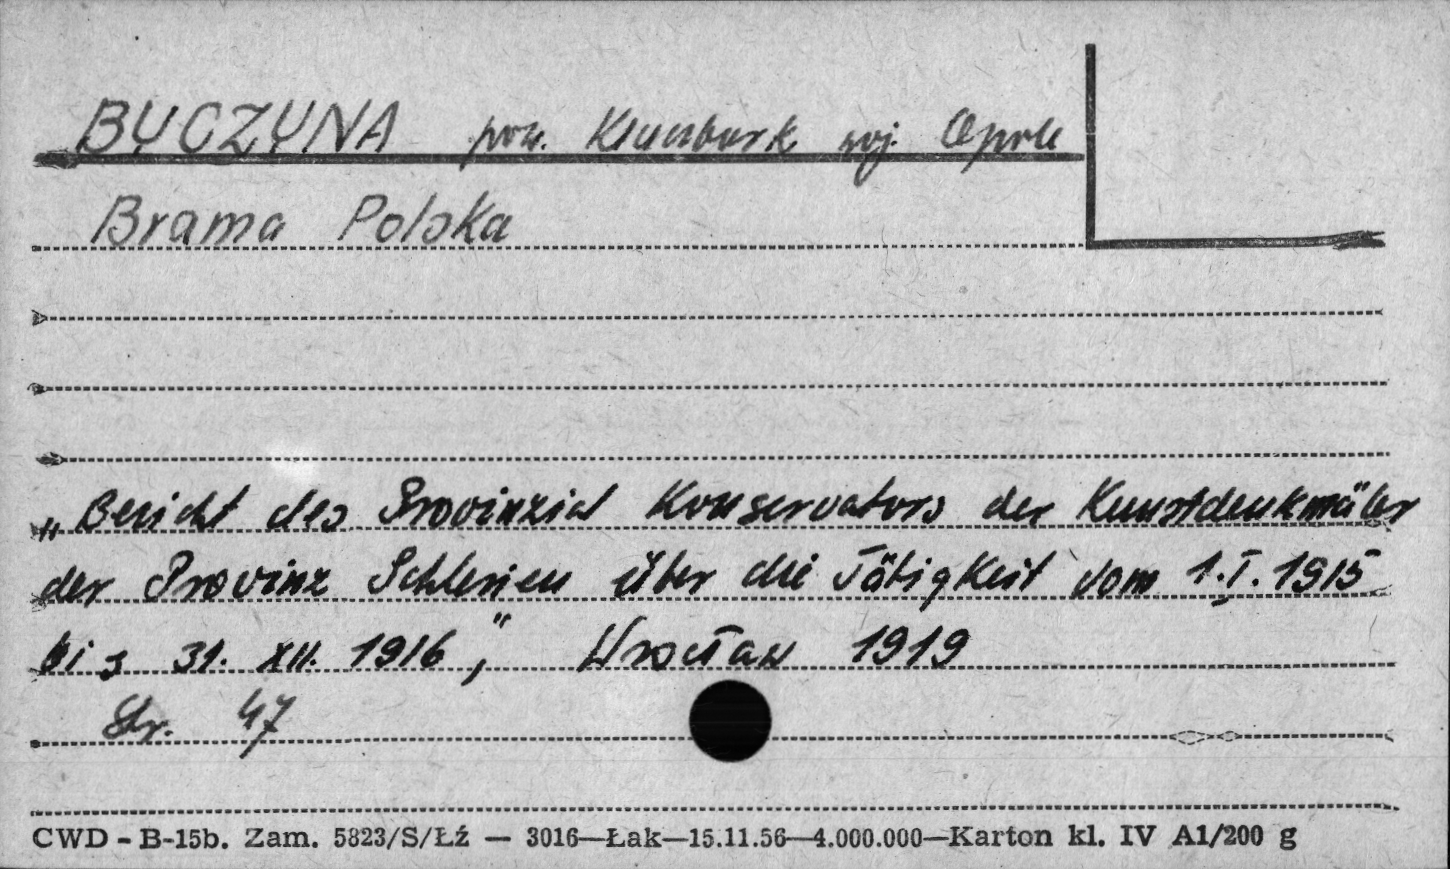 BYCZYNA pow. Kluczbork woj. Opole
Brama Polska
„Bericht des Provinzial Konservators der Kunstdenkmäler
der Provinz Schlesien über die Tätigkeit vom 1.I.1915
bis 31. XII. 1916", Wrocław 1919
Str. 47
CWD - B-15b. Zam. 5823/S/Łź — 3016—Łak—15.11.56—4.000.000—Karton kl. IV A1/200 g